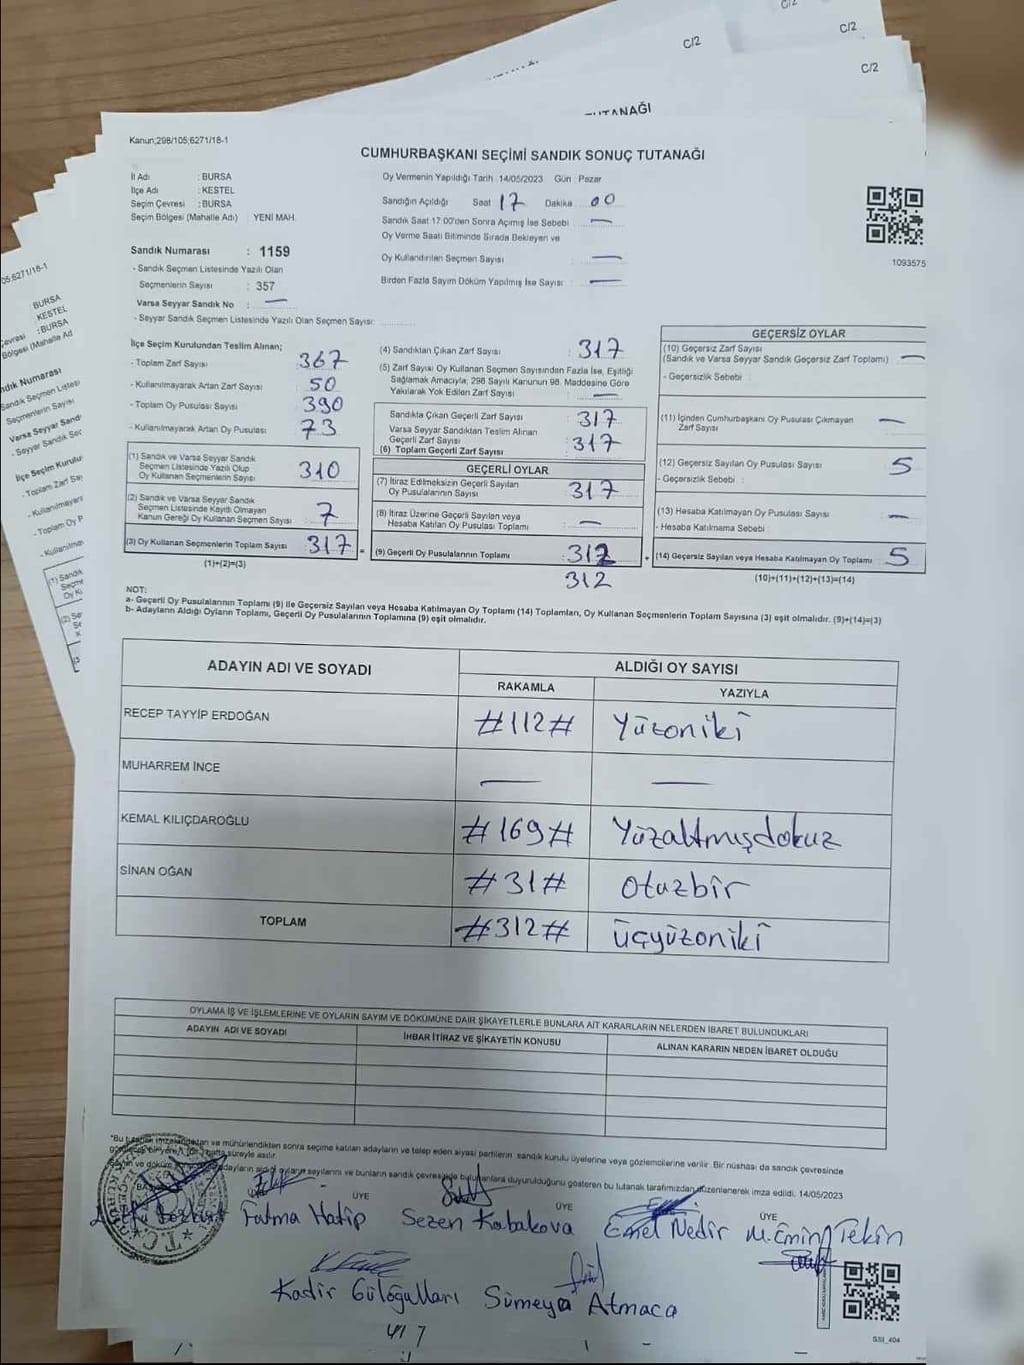 C/2
C/2
C/2
TUTANAĞI
Kanun;298/105;6271/18-1
CUMHURBAŞKANI SEÇİMİ SANDIK SONUÇ TUTANAĞI
İl Adı : BURSA
İlçe Adı : KESTEL
Seçim Çevresi : BURSA
Seçim Bölgesi (Mahalle Adı) : YENİ MAH.
Sandık Numarası : 1159
- Sandık Seçmen Listesinde Yazılı Olan
Seçmenlerin Sayısı : 357
Varsa Seyyar Sandık No : —
- Seyyar Sandık Seçmen Listesinde Yazılı Olan Seçmen Sayısı:
Oy Vermenin Yapıldığı Tarih :14/05/2023 Gün : Pazar
Sandığın Açıldığı Saat 17 Dakika 00
Sandık Saat 17:00'den Sonra Açımış İse Sebebi —
Oy Verme Saati Bitiminde Sırada Bekleyen ve
Oy Kullandırılan Seçmen Sayısı —
Birden Fazla Sayım Döküm Yapılmış İse Sayısı —
1093575
İlçe Seçim Kurulundan Teslim Alınan;
- Toplam Zarf Sayısı 367
- Kullanılmayarak Artan Zarf Sayısı 50
- Toplam Oy Pusulası Sayısı 390
- Kullanılmayarak Artan Oy Pusulası 73
(1) Sandık ve Varsa Seyyar Sandık
Seçmen Listesinde Yazılı Olup
Oy Kullanan Seçmenlerin Sayısı 310
(2) Sandık ve Varsa Seyyar Sandık
Seçmen Listesinde Kayıtlı Olmayan
Kanun Gereği Oy Kullanan Seçmen Sayısı 7
(3) Oy Kullanan Seçmenlerin Toplam Sayısı 317
(1)+(2)=(3)
(4) Sandıktan Çıkan Zarf Sayısı 317
(5) Zarf Sayısı Oy Kullanan Seçmen Sayısından Fazla İse, Eşitliği
Sağlamak Amacıyla; 298 Sayılı Kanunun 98. Maddesine Göre
Yakılarak Yok Edilen Zarf Sayısı —
Sandıkta Çıkan Geçerli Zarf Sayısı 317
Varsa Seyyar Sandıktan Teslim Alınan
Geçerli Zarf Sayısı
(6) Toplam Geçerli Zarf Sayısı 317
GEÇERLİ OYLAR
(7) İtiraz Edilmeksizin Geçerli Sayılan
Oy Pusulalarının Sayısı 317
(8) İtiraz Üzerine Geçerli Sayılan veya
Hesaba Katılan Oy Pusulası Toplamı —
(9) Geçerli Oy Pusulalarının Toplamı 312
312
GEÇERSİZ OYLAR
(10) Geçersiz Zarf Sayısı
(Sandık ve Varsa Seyyar Sandık Geçersiz Zarf Toplamı) —
- Geçersizlik Sebebi :
(11) İçinden Cumhurbaşkanı Oy Pusulası Çıkmayan
Zarf Sayısı —
(12) Geçersiz Sayılan Oy Pusulası Sayısı 5
- Geçersizlik Sebebi :
(13) Hesaba Katılmayan Oy Pusulası Sayısı —
- Hesaba Katılmama Sebebi :
(14) Geçersiz Sayılan veya Hesaba Katılmayan Oy Toplamı 5
(10)+(11)+(12)+(13)=(14)
NOT:
a- Geçerli Oy Pusulalarının Toplamı (9) ile Geçersiz Sayılan veya Hesaba Katılmayan Oy Toplamı (14) Toplamları, Oy Kullanan Seçmenlerin Toplam Sayısına (3) eşit olmalıdır. (9)+(14)=(3)
b- Adayların Aldığı Oyların Toplamı, Geçerli Oy Pusulalarının Toplamına (9) eşit olmalıdır.
ADAYIN ADI VE SOYADI ALDIĞI OY SAYISI
RAKAMLA YAZIYLA
RECEP TAYYİP ERDOĞAN #112# Yüzoniki
MUHARREM İNCE — —
KEMAL KILIÇDAROĞLU #169# Yüzaltmışdokuz
SİNAN OĞAN #31# Otuzbir
TOPLAM #312# üçyüzoniki
OYLAMA İŞ VE İŞLEMLERİNE VE OYLARIN SAYIM VE DÖKÜMÜNE DAİR ŞİKAYETLERLE BUNLARA AİT KARARLARIN NELERDEN İBARET BULUNDUKLARI
ADAYIN ADI VE SOYADI İHBAR İTİRAZ VE ŞİKAYETİN KONUSU ALINAN KARARIN NEDEN İBARET OLDUĞU
*Bu tutanak imzalandıktan ve mühürlendikten sonra seçime katılan adayların ve talep eden siyasi partilerin sandık kurulu üyelerine veya gözlemcilerine verilir. Bir nüshası da sandık çevresinde
süreyle asılır.
adayların aldığı oyların sayılarını ve bunların sandık çevresinde bulunanlara duyurulduğunu gösteren bu tutanak tarafımızdan düzenlenerek imza edildi. 14/05/2023
ÜYE ÜYE ÜYE
Fatma Hatip Sezen Kabakova Emel Nedir M. Emin Tekin
Kadir Güloğulları Sümeya Atmaca
SSI_404